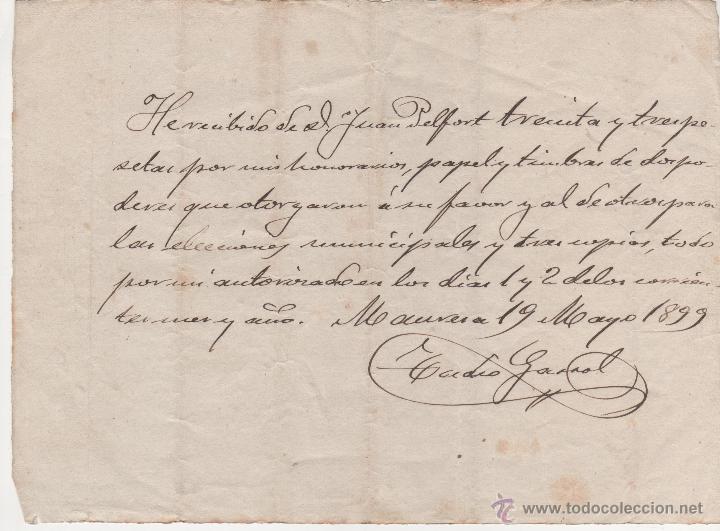 He recibido de D. Juan Pelfort treinta y tres pe-
setas por mis honorarios, papel y timbres de dos po-
deres que otorgaron á su favor y al de otros para
las elecciones municipales y tres copias, todo
por mi autorizado en los dias 1 y 2 de los corrien-
tes mes y año. Manresa 19 Mayo 1899
Gassol
www.todocoleccion.net